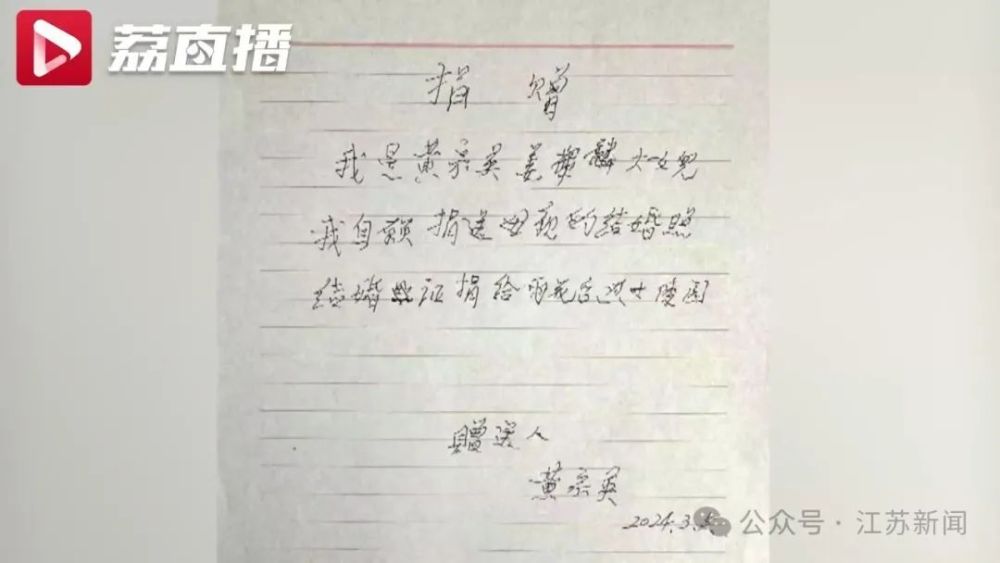 荔直播
捐 赠
我是黄宗英姜 大女儿
我自愿捐送母亲的结婚照
结婚 证捐给雨花台烈士陵园
赠送人
黄宗英
2024.3.
公众号·江苏新闻